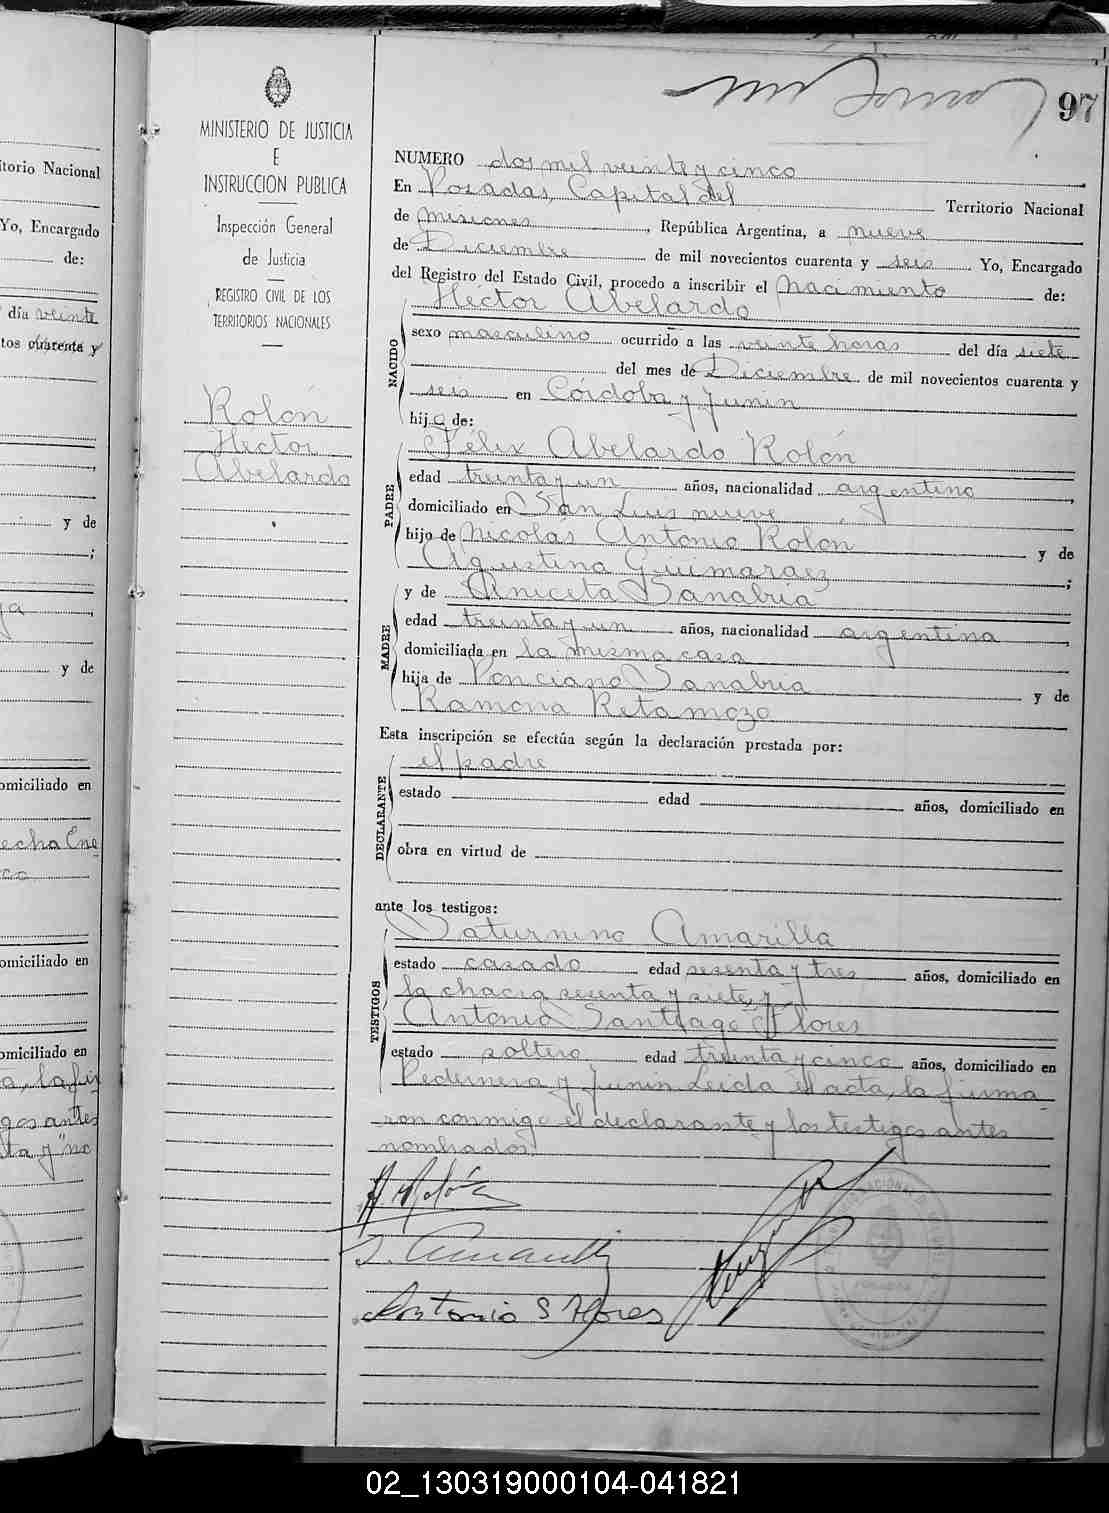 97
MINISTERIO DE JUSTICIA
E
INSTRUCCION PUBLICA
Inspección General
de Justicia
REGISTRO CIVIL DE LOS
TERRITORIOS NACIONALES
Rolón
Hector
Abelardo
NUMERO dos mil veinte y cinco
En Posadas, Capital del Territorio Nacional
de Misiones, República Argentina, a nueve
de Diciembre de mil novecientos cuarenta y seis. Yo, Encargado
del Registro del Estado Civil, procedo a inscribir el Nacimiento de:
Hector Abelardo
NACIDO
sexo masculino ocurrido a las veinte horas del día siete
del mes de Diciembre de mil novecientos cuarenta y
seis en Córdoba y Junin
hijo de:
Félix Abelardo Rolón
PADRE
edad treinta y un años, nacionalidad argentino,
domiciliado en San Luis nueve
hijo de Nicolás Antonio Rolón y de
Agustina Guimaraez;
y de Aniceta Sanabria
MADRE
edad treinta y un años, nacionalidad argentina,
domiciliada en la misma casa
hija de Ponciano Sanabria y de
Ramona Retamozo
Esta inscripción se efectúa según la declaración prestada por:
el padre
DECLARANTE
estado edad años, domiciliado en
obra en virtud de
ante los testigos:
Saturnino Amarilla
TESTIGOS
estado casado edad sesenta y tres años, domiciliado en
la chacra sesenta y siete, y
Antonio Santiago Flores
estado soltero edad treinta y cinco años, domiciliado en
Pedernera y Junin. Leida el acta, la firma
ron conmigo el declarante y los testigos antes
nombrados.
A Rolón
S. Amarilla
Antonio S Flores
itorio Nacional
Yo, Encargado
de:
día veinte
tos cuarenta y
y de
;
y de
omiciliado en
omiciliado en
omiciliado en
gos antes
02_130319000104-041821